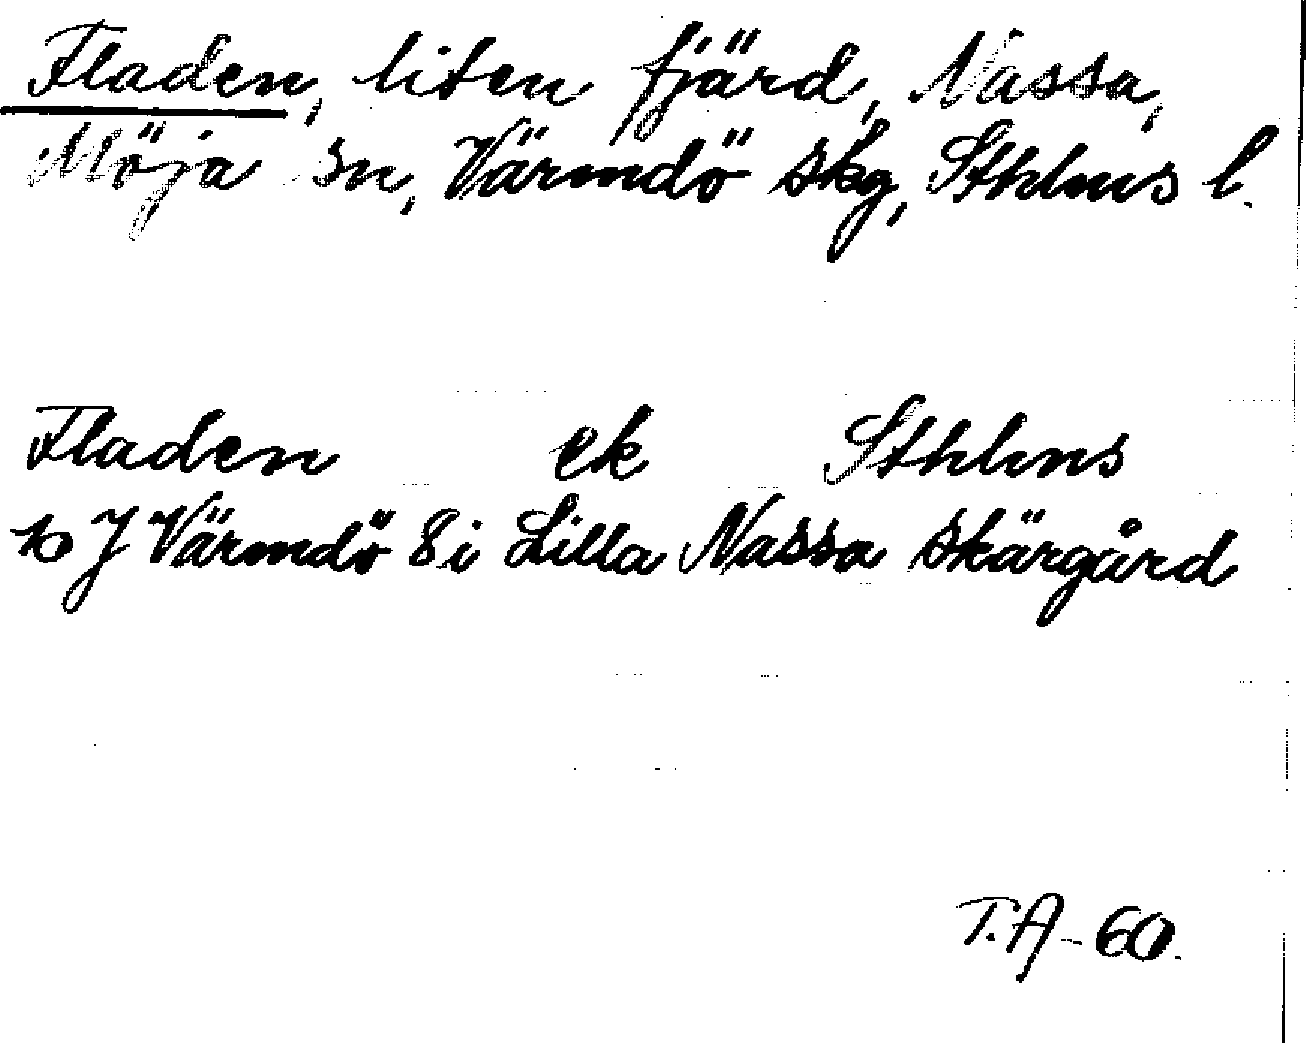 Fladen, liten fjärd, Nassa,
Möja sn, Värmdö skg, Sthlms l.
Fladen ek Sthlms
10 J Värmdö 8 i Lilla Nassa skärgård
T.A-60.